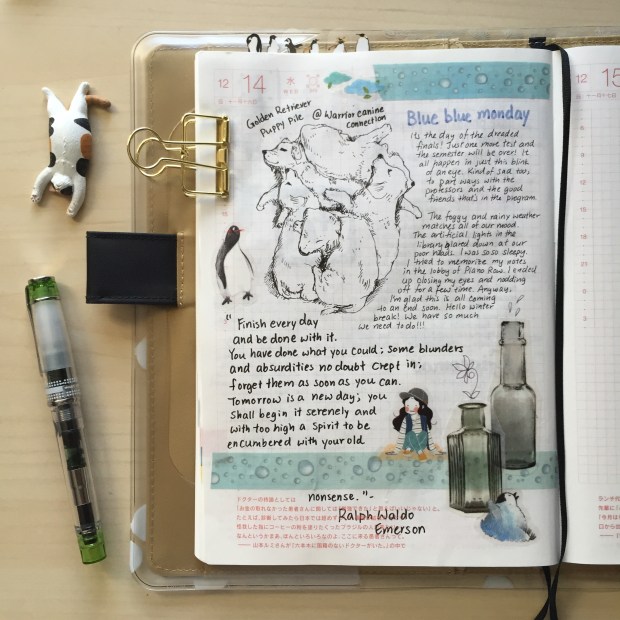 12
14
水
12
15
Golden Retriever
Puppy Pile @ Warrior canine
connection
Blue blue monday
It's the day of the dreaded
finals! Just one more test and
the semester will be over! It
all happen in just this blink
of an eye. Kind of sad too,
to part ways with the
professors and the good
friends that's in the program
The foggy and rainy weather
matches all of our mood.
The artificial lights in the
library glared down at our
poor heads. I was sooo sleepy.
I tried to memorize my notes
in the lobby of Piano Row. I ended
up closing my eyes and nodding
off for a few times. Anyway,
I'm glad this is all coming
to an end soon. Hello Winter
break! We have so much
we need to do!!!
" Finish every day
and be done with it.
You have done what you could; some blunders
and absurdities no doubt crept in;
forget them as soon as you can.
Tomorrow is a new day; you
shall begin it serenely and
with too high a spirit to be
encumbered with your old
nonsense." -
Ralph Waldo
Emerson
ドクターの持論としては